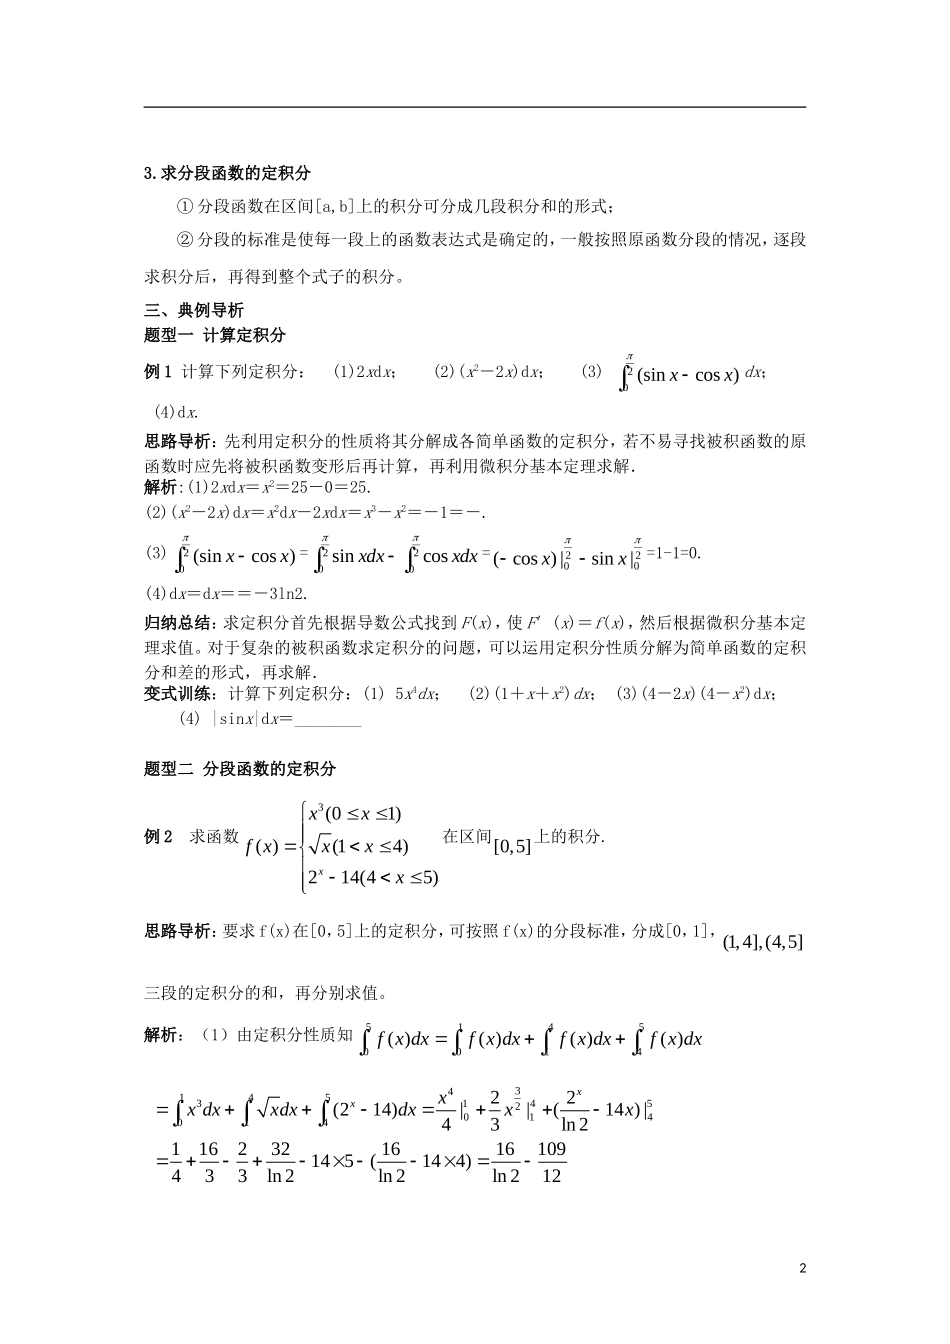 3.求分段函数的定积分
① 分段函数在区间[a,b]上的积分可分成几段积分和的形式;
② 分段的标准是使每一段上的函数表达式是确定的,一般按照原函数分段的情况,逐段
求积分后，再得到整个式子的积分。
三、典例导析
题型一 计算定积分
例1 计算下列定积分： (1)2xdx； (2)(x²－2x)dx； (3) ∫₀^(π/2) (sin x − cos x) dx；
(4)dx.
思路导析：先利用定积分的性质将其分解成各简单函数的定积分，若不易寻找被积函数的原
函数时应先将被积函数变形后再计算，再利用微积分基本定理求解．
解析:(1)2xdx＝x²＝25－0＝25.
(2)(x²－2x)dx＝x²dx－2xdx＝x³－x²＝－1＝－.
(3) ∫₀^(π/2) (sin x − cos x) = ∫₀^(π/2) sin xdx − ∫₀^(π/2) cos xdx = (− cos x)|₀^(π/2) − sin x|₀^(π/2) =1-1=0.
(4)dx＝dx＝＝－3ln2.
归纳总结：求定积分首先根据导数公式找到 F(x)，使 F′ (x)＝f(x)，然后根据微积分基本定
理求值。对于复杂的被积函数求定积分的问题，可以运用定积分性质分解为简单函数的定积
分和差的形式，再求解．
变式训练：计算下列定积分：(1) 5x⁴dx； (2)(1＋x＋x²)dx； (3)(4－2x)(4－x²)dx；
(4) |sinx|dx＝________
题型二 分段函数的定积分
例2 求函数 f(x) = { x³(0 ≤ x ≤1) √x(1 < x ≤4) 2ˣ − 14(4 < x ≤5) 在区间[0,5]上的积分.
思路导析：要求 f(x)在[0，5]上的定积分，可按照 f(x)的分段标准，分成[0，1]，(1,4],(4,5]
三段的定积分的和，再分别求值。
解析：（1）由定积分性质知 ∫₀⁵ f(x)dx = ∫₀¹ f(x)dx + ∫₁⁴ f(x)dx + ∫₄⁵ f(x)dx
= ∫₀¹ x³dx + ∫₁⁴ √xdx + ∫₄⁵ (2ˣ − 14)dx = x⁴/4 |₀¹ + 2/3 x^(3/2) |₁⁴ + (2ˣ/ln 2 − 14x)|₄⁵
= 1/4 + 16/3 − 2/3 + 32/ln 2 − 14×5 − (16/ln 2 − 14×4) = 16/ln 2 − 109/12
2